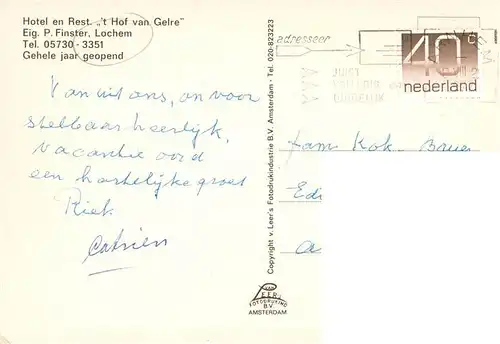 Hotel en Rest. „'t Hof van Gelre"
Eig. P. Finster, Lochem
Tel. 05730 - 3351
Gehele jaar geopend
Van uit ons, on voor
stelbaar heerlijk,
vacantie oord
een hartelijke groet
Riek
Catrien
Copyright v. Leer's Fotodrukindustrie B.V. Amsterdam - Tel. 020-823223
VAN
LEER's
FOTODRUKIND
B.V.
AMSTERDAM
adresseer
JUIST
VOLLEDIG
DUIDELIJK
40c
nederland
fam Kok-
Edi